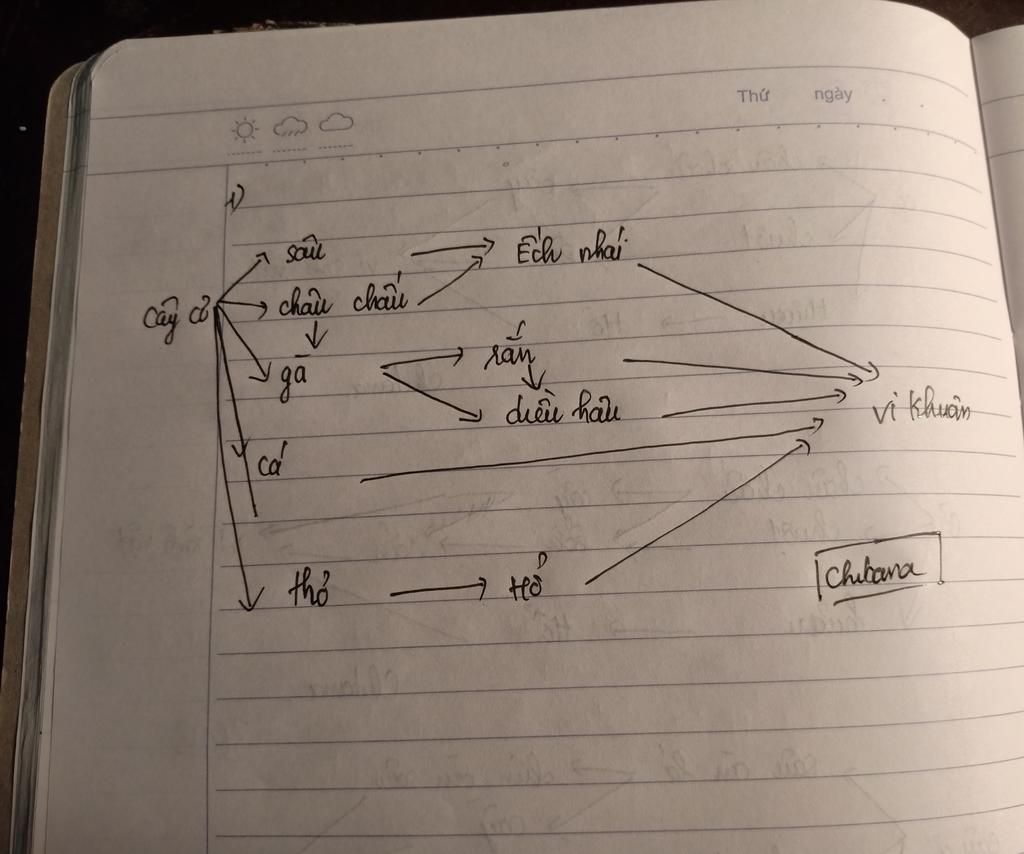 Thứ ngày
1)
sâu Ếch nhái
châu chấu
cây cỏ
gà rắn
diều hâu
vi khuẩn
cá
Chibana
thỏ Hổ